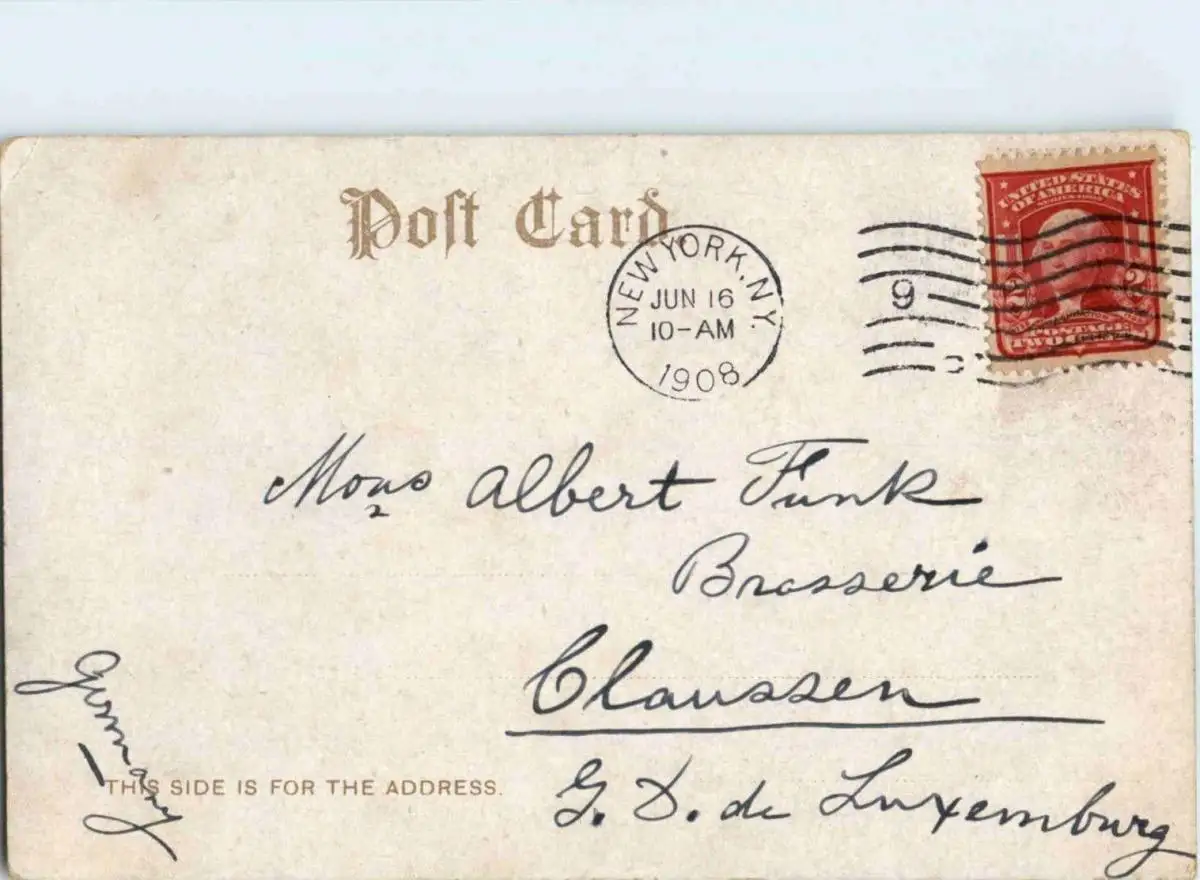 Post Card
NEW YORK, N.Y.
JUN 16
10-AM
1908
9
UNITED STATES
OF AMERICA
2 2
POSTAGE
TWO
Mons Albert Funk
Brasserie
Claussen
G. D. de Luxemburg
Germany
THIS SIDE IS FOR THE ADDRESS.